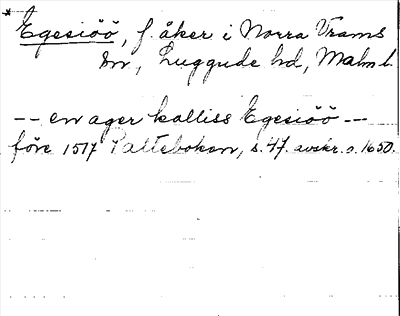 * Egesiöö, f. åker i Norra Vrams
sn, Luggude hd, Malm l.
-- en ager kalliss Egesiöö --
före 1517 Pattebokon, s. 47. avskr. o. 1650.